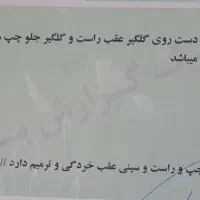 دست روی گلگیر عقب راست و گلگیر جلو چپ
میباشد
چپ و راست و سینی عقب خردگی و ترمیم دارد //